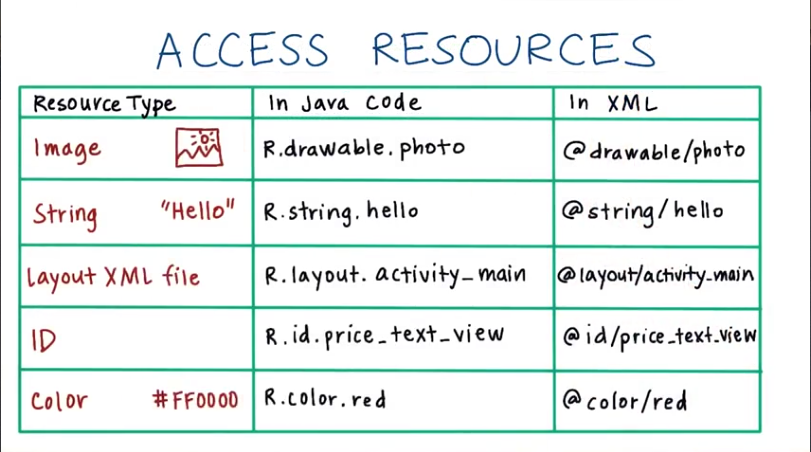 ACCESS RESOURCES
Resource Type In Java Code In XML
Image R.drawable.photo @drawable/photo
String "Hello" R.string.hello @string/hello
Layout XML file R.layout.activity_main @layout/activity_main
ID R.id.price_text_view @id/price_text_view
Color #FF0000 R.color.red @color/red